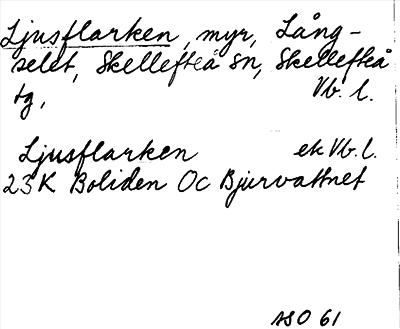 Ljusflarken, myr, Lång-
selet, Skellefteå sn, Skellefteå
tg, Vb. l.
Ljusflarken ek Vb. l.
23K Boliden Oc Bjurvattnet
SSO 61